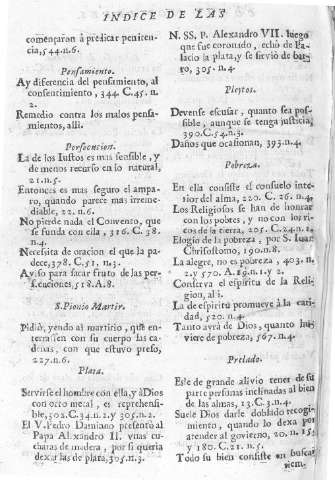 INDICE DE LAS
començaron à predicar peniten-
cia, 544. n. 6.
Pensamiento.
Ay diferencia del pensamiento, al
consentimiento, 344. C. 45. n.
2.
Remedio contra los malos pensa-
mientos, alli.
Persecucion.
La de los Iustos es mas sensible, y
de menos recurso en lo natural,
21. n. 5.
Entonces es mas seguro el ampa-
ro, quando parece mas irreme-
diable, 22. n. 6.
No pierde nada el Convento, que
se funda con ella, 316. C. 38.
n. 4.
Necessita de oracion el que la pa-
dece, 378. C. 51. n. 3.
Aviso para sacar fruto de las per-
secuciones, 518. A. 8.
S. Pionio Martir.
Pidiò, yendo al martirio, que en-
terrassen con su cuerpo las ca-
denas, con que estuvo preso,
227. n. 6.
Plata.
Servirse el hombre con ella, y à Dios
con otro metal, es reprehensi-
ble, 302. C. 34. n. 2. y 305. n. 2.
El V. Pedro Damiano presentò al
Papa Alexandro II. vnas cu-
charas de madera, por si queria
dexar las de plata, 305. n. 3.
N. SS. P. Alexandro VII. luego
que fue coronado, echò de Pa-
lacio la plata, y se sirviò de bar-
ro, 305. n. 4.
Pleytos.
Devense escusar, quanto sea pos-
sible, aunque se tenga justicia,
390. C. 54. n. 3.
Daños que ocasionan, 393. n. 4.
Pobreza.
En ella consiste el consuelo inte-
rior del alma, 220. C. 26. n. 4.
Los Religiosos se han de honrar
con los pobres, y no con los ri-
cos de la tierra, 205. C. 24. n. 2.
Elogio de la pobreza, por S. Iuan
Chrisostomo, 190. n. 8.
La alegre, no es pobreza, 403. n.
2. y 570. A. 19. n. 1. y 2.
Conserva el espiritu de la Reli-
gion, al i.
La de espiritu promueve à la cari-
dad, 520. n. 4.
Tanto avrà de Dios, quanto hu-
viere de pobreza, 567. n. 4.
Prelado.
Esle de grande alivio tener de su
parte personas inclinadas al bien
de las almas, 13. C. 3. n. 4.
Suele Dios darle doblado recogi-
miento, quando lo dexa por
atender al govierno, 20. n. 15.
y 180. C. 21. n. 5.
Todo su bien consiste en buscar
viem.